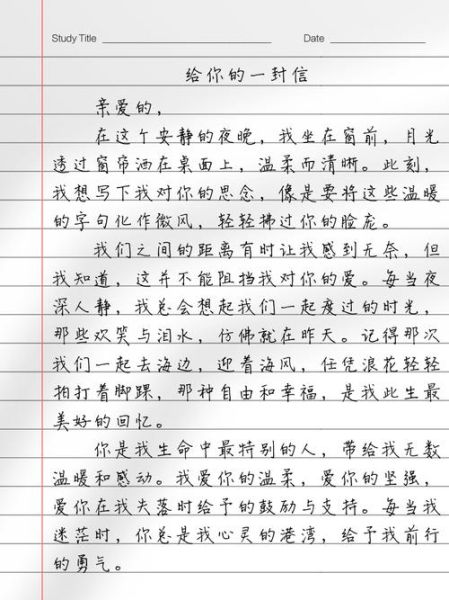 Study Title Date
给你的一封信
亲爱的，
在这个安静的夜晚，我坐在窗前，月光
透过窗帘洒在桌面上，温柔而清晰。此刻，
我想写下我对你的思念，像是要将这些温暖
的字句化作微风，轻轻拂过你的脸庞。
我们之间的距离有时让我感到无奈，但
我知道，这并不能阻挡我对你的爱。每当夜
深人静，我总会想起我们一起度过的时光，
那些欢笑与泪水，仿佛就在昨天。记得那次
我们一起去海边，迎着海风，任凭浪花轻轻
拍打着脚踝，那种自由和幸福，是我此生最
美好的回忆。
你是我生命中最特别的人，带给我无数
温暖和感动。我爱你的温柔，爱你的坚强，
爱你在我失落时给予的鼓励与支持。每当我
迷茫时，你总是我心灵的港湾，给予我前行
的勇气。